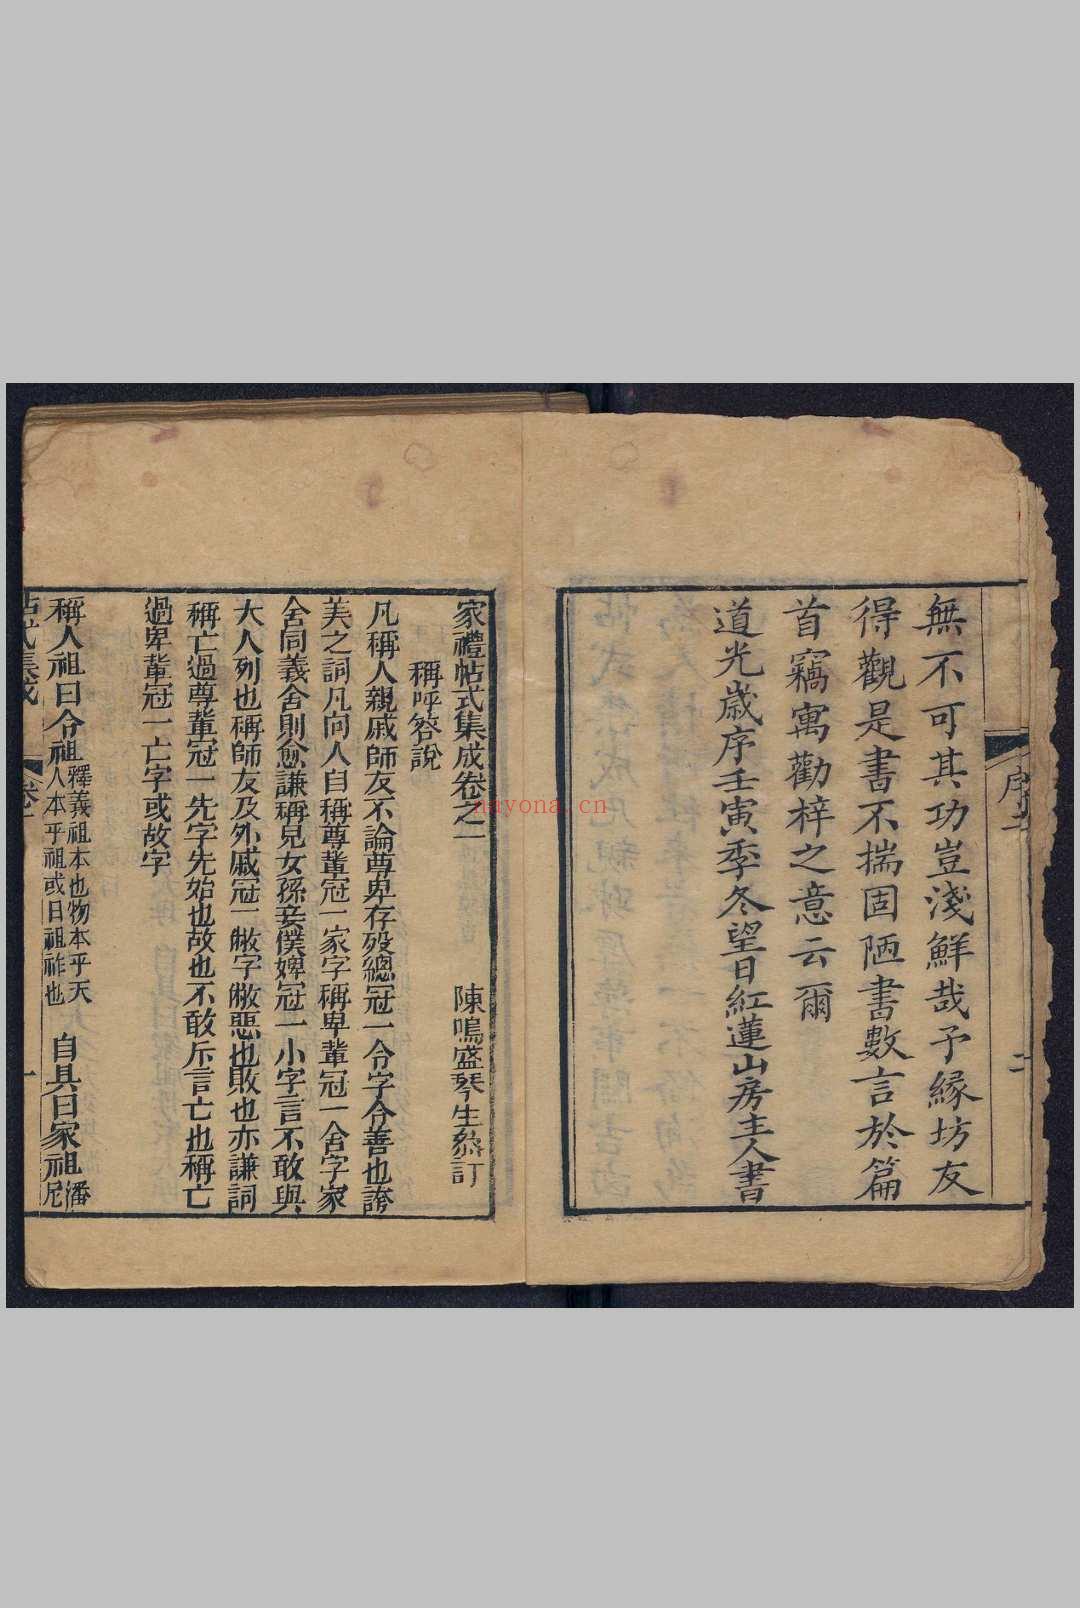 序
二
無不可其功豈淺鮮哉予緣坊友
得觀是書不揣固陋書數言於篇
首竊寓勸梓之意云爾
道光歲序壬寅季冬望日紅蓮山房主人書
家禮帖式集成卷之一
陳鳴盛琴生叅訂
稱呼答說
凡稱人親戚師友不論尊卑存歿總冠一令字令善也誇
美之詞凡向人自稱尊輩冠一家字稱卑輩冠一舍字家
舍同義舍則愈謙稱兒女孫妾僕婢冠一小字言不敢與
大人列也稱師友及外戚冠一敝字敝惡也敗也亦謙詞
稱亡過尊輩冠一先字先始也故也不敢斥言亡也稱亡
過卑輩冠一亡字或故字
稱人祖曰令祖
釋義祖本也物本乎天
人本乎祖或曰祖祚也
自具曰家祖
潘
尼
帖式集成
卷一
一
nayona.cn